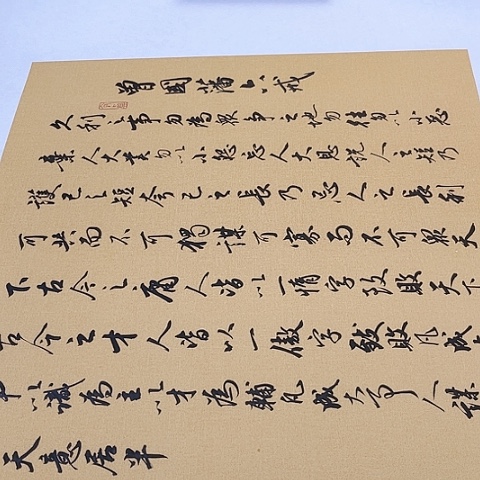 曾國藩六戒
久利之事勿為眾爭之地勿往勿以小惡
棄人大美勿以小怨忘人大恩說人之短乃
護己之短夸己之長乃忌人之長利
可共而不可獨謀可寡而不可眾天
下古今之庸人皆以一惰字致敗天下
古今之才人皆以一傲字致敗凡成大
事以識為主以才為輔凡成大事人謀
天意居半